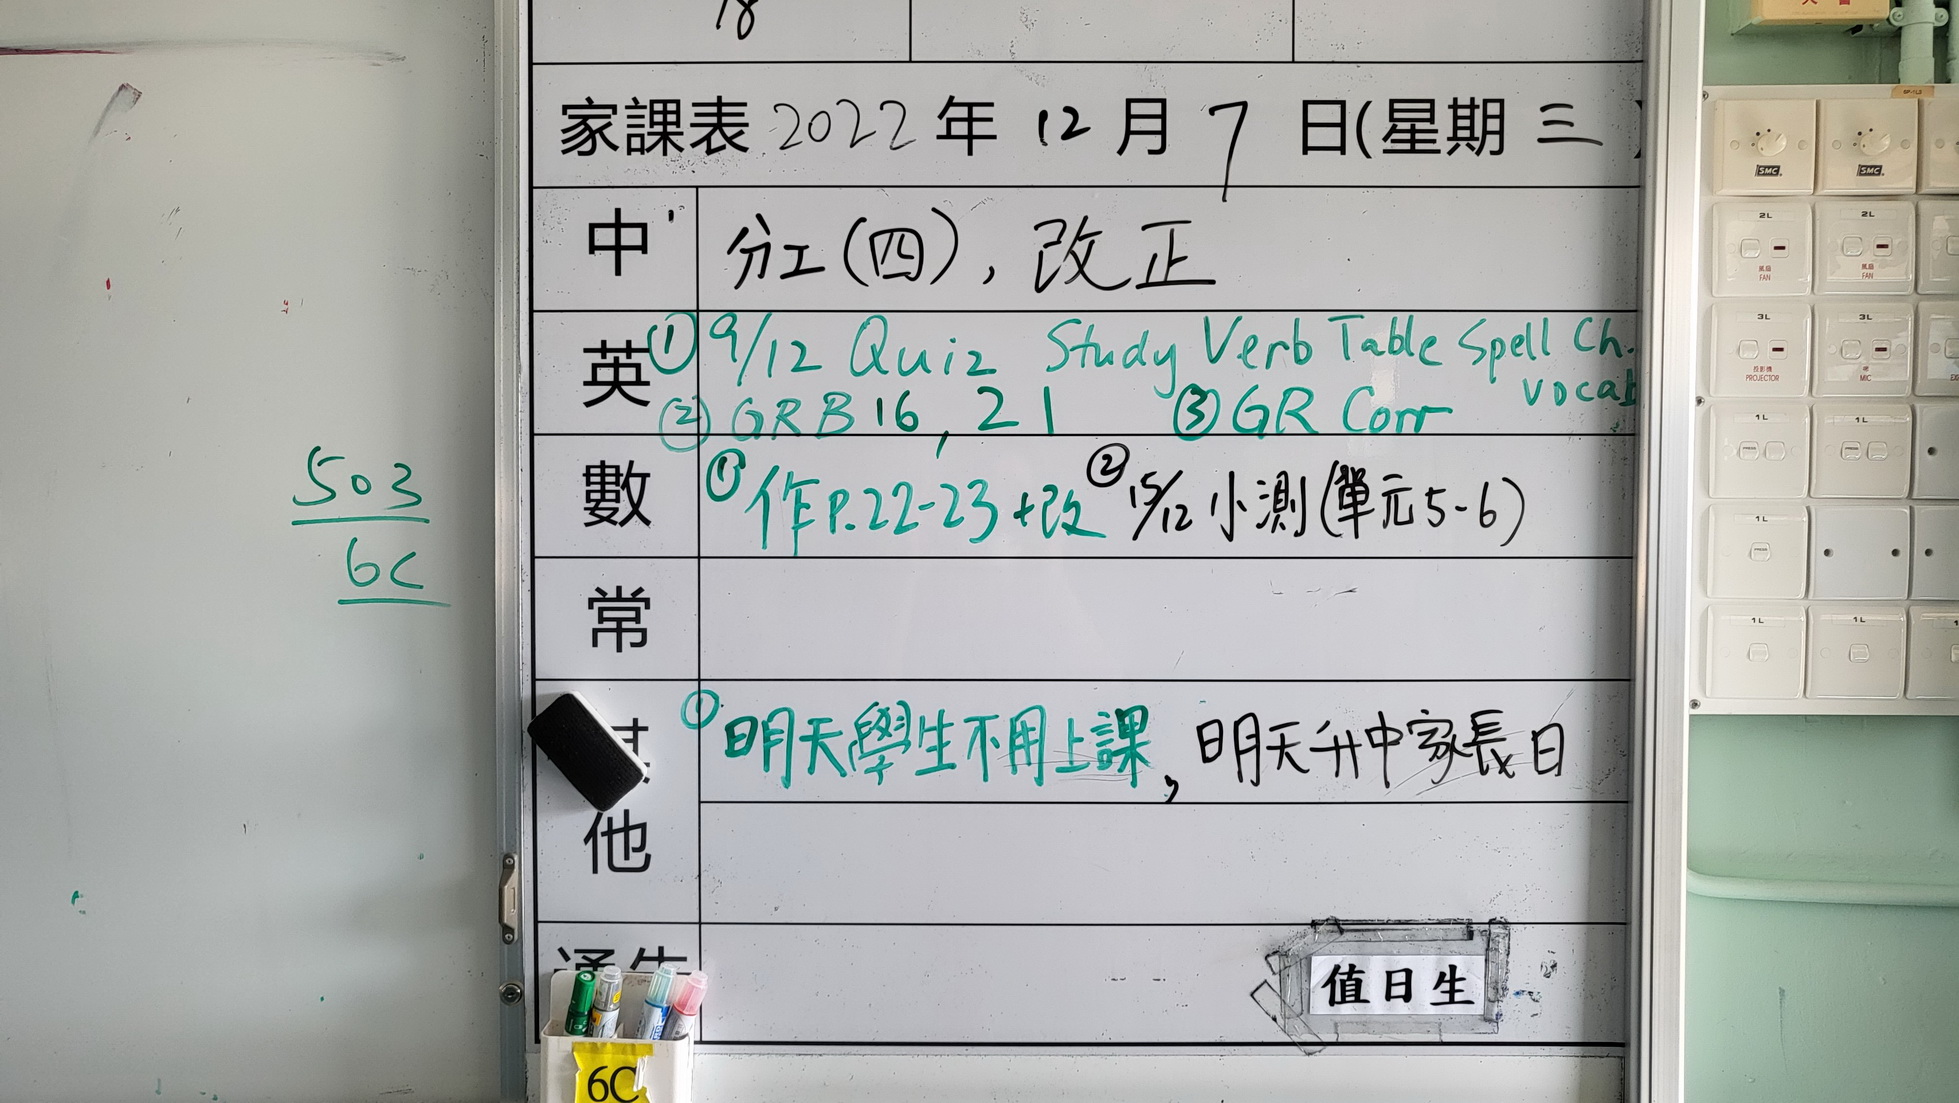 18
家課表 2022 年 12 月 7 日(星期 三 )
中 分工(四), 改正
英 ① 9/12 Quiz Study Verb Table Spell Ch. vocab
② GRB 16, 21 ③ GR Corr
數 ① 作P.22-23+改 ② 15/12 小測(單元5-6)
常
其他 ① 明天學生不用上課, 明天升中家長日
通告
值日生
6C
503
6C
SMC
SMC
2L
2L
風扇
FAN
風扇
FAN
3L
3L
投影機
PROJECTOR
MIC
1L
1L
1L
1L
1L